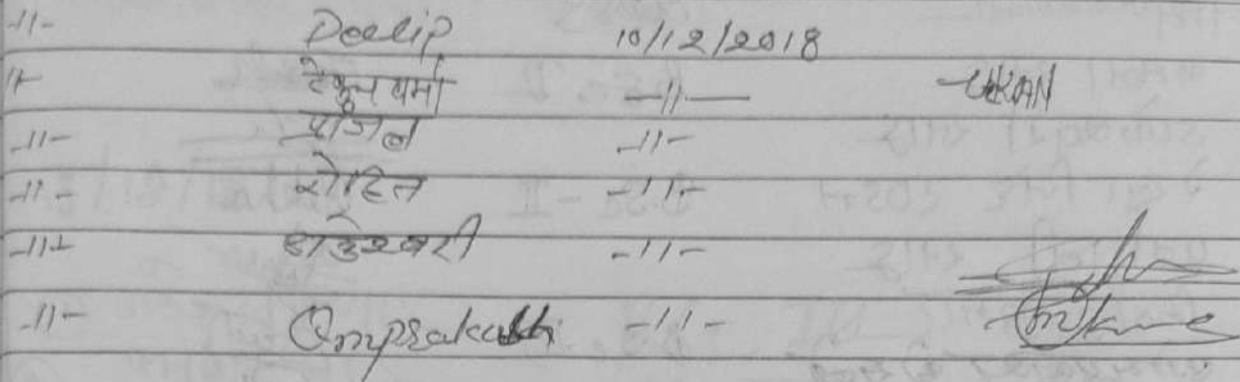 -11- Deelip 10/12/2018
11- टेकुन वर्मा -11-
-11- प्रांजल -11-
-11- रोहित -11-
-11- -11-
-11- Omprakash -11-